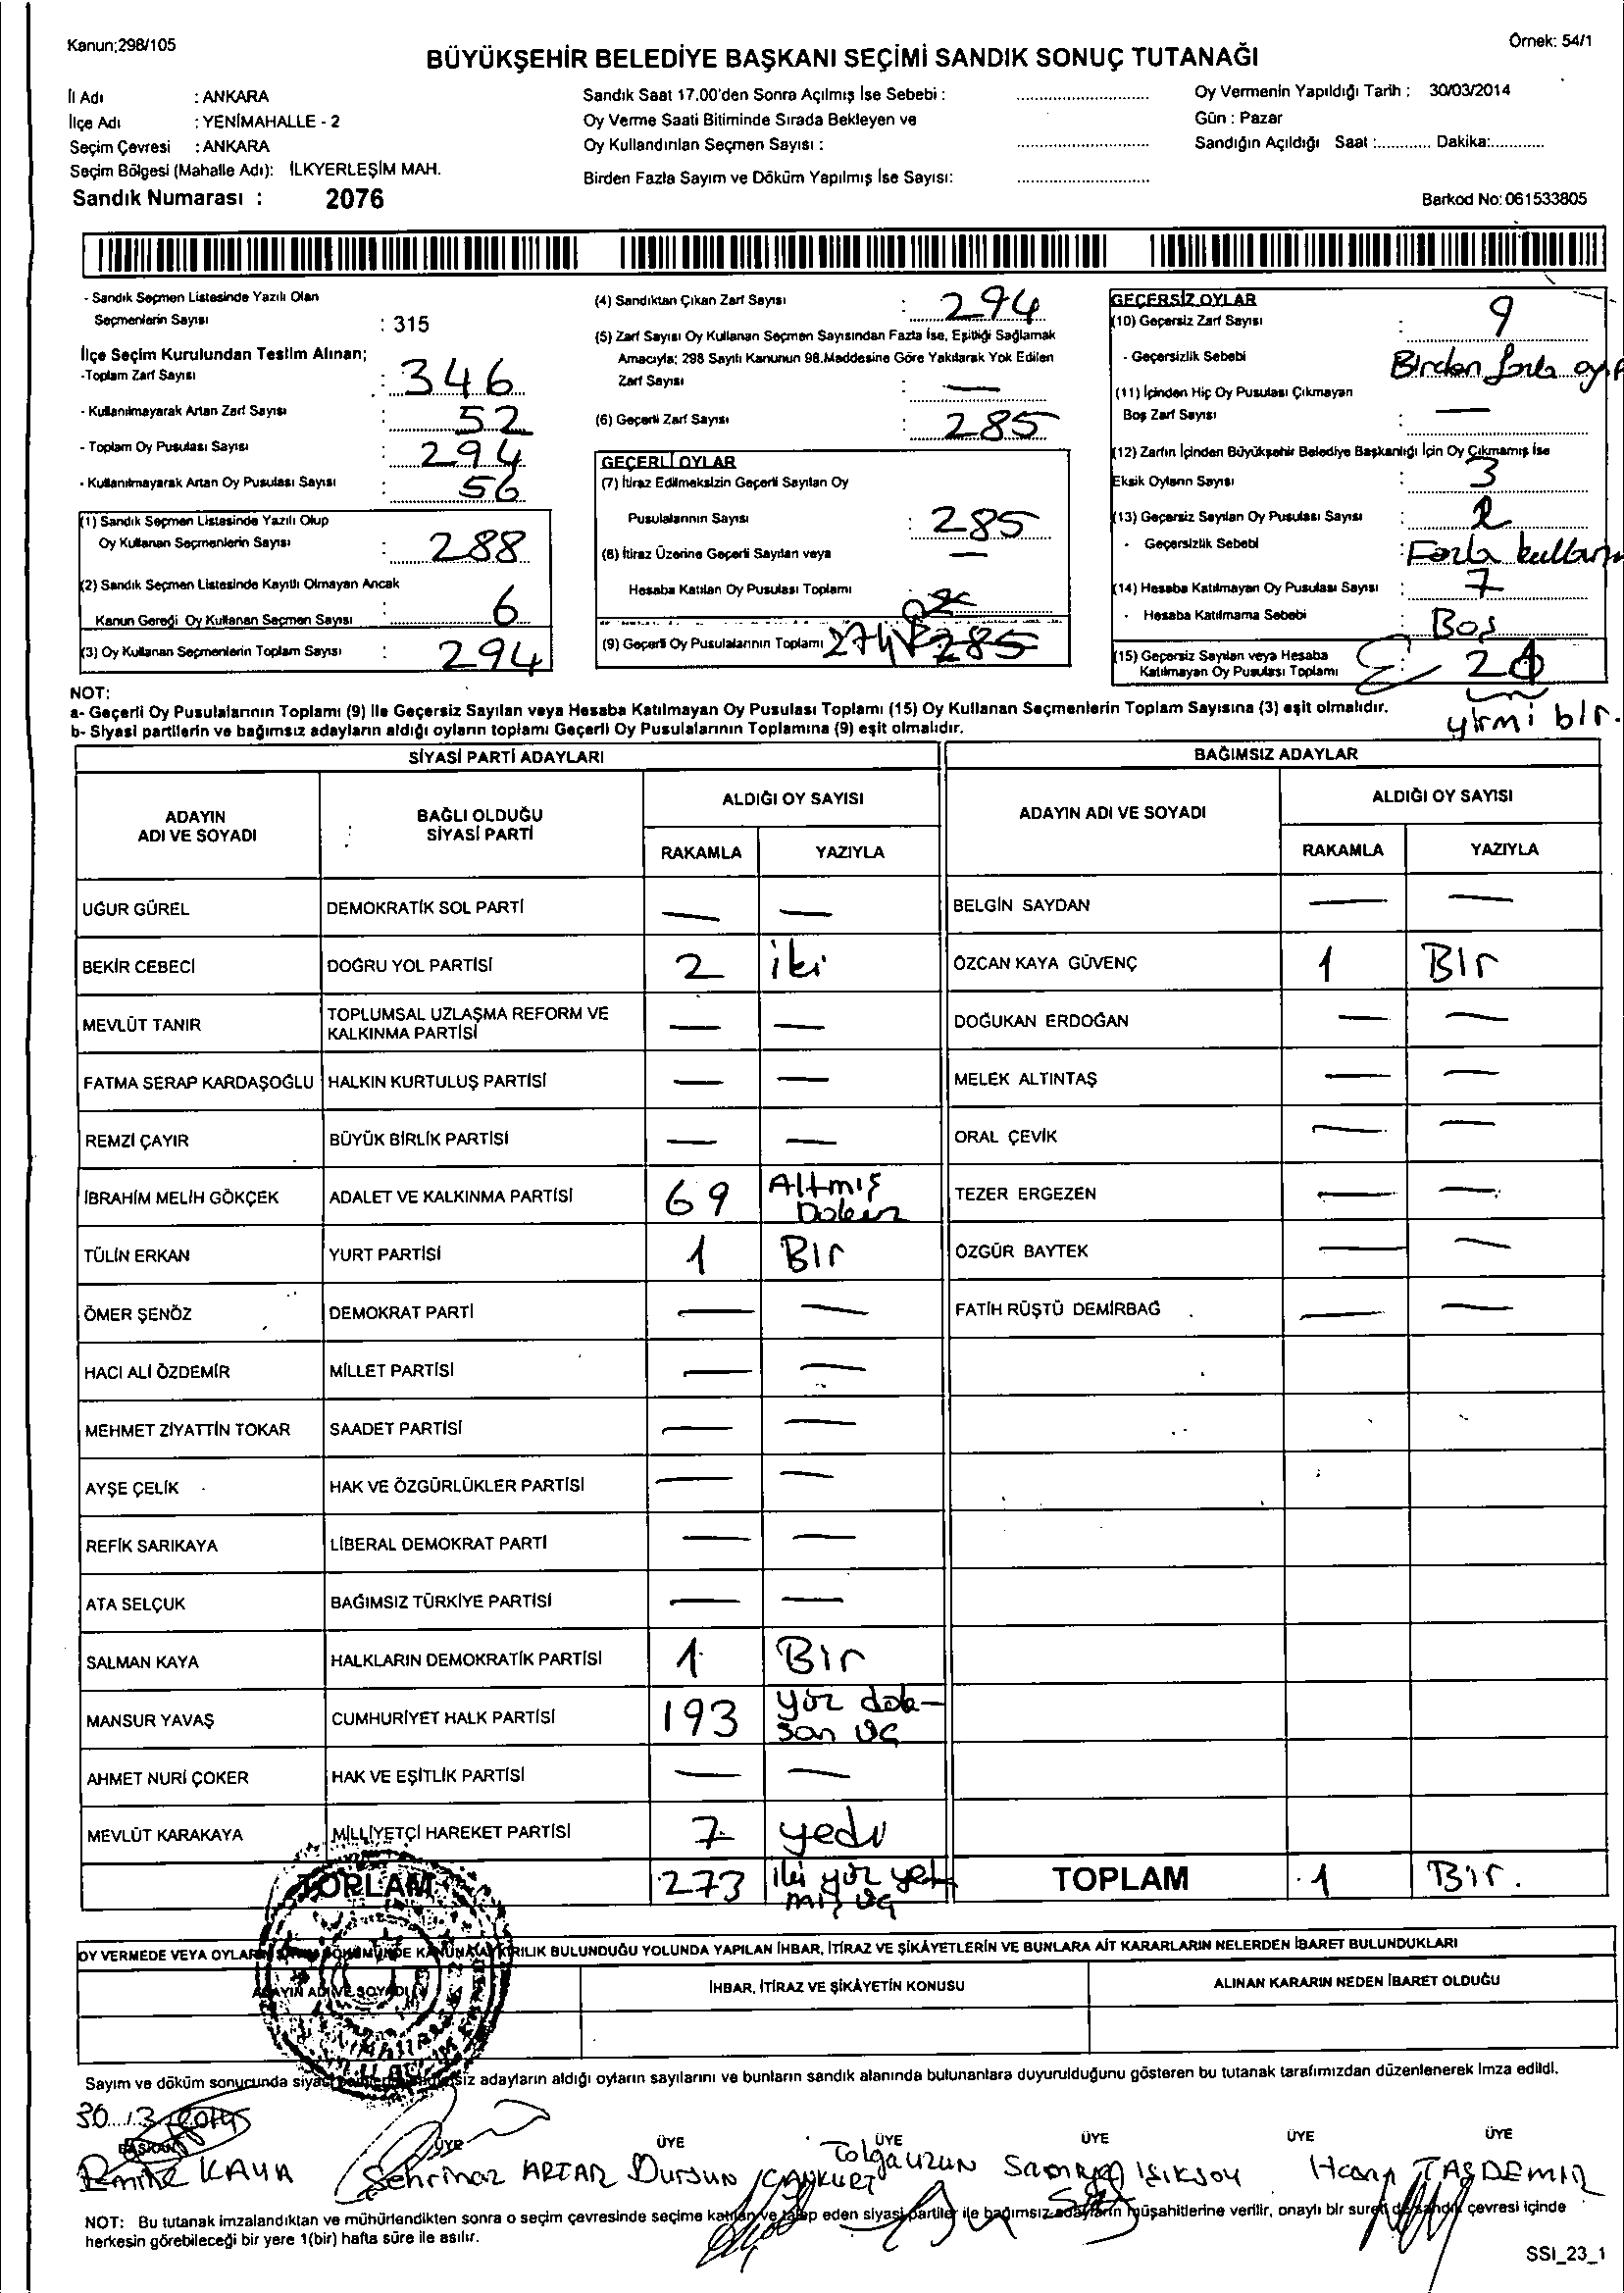 Kanun;298/105
Örnek: 54/1
BÜYÜKŞEHİR BELEDİYE BAŞKANI SEÇİMİ SANDIK SONUÇ TUTANAĞI
İl Adı : ANKARA
İlçe Adı : YENİMAHALLE - 2
Seçim Çevresi : ANKARA
Seçim Bölgesi (Mahalle Adı): İLKYERLEŞİM MAH.
Sandık Numarası : 2076
Sandık Saat 17.00'den Sonra Açılmış İse Sebebi :
Oy Verme Saati Bitiminde Sırada Bekleyen ve
Oy Kullandırılan Seçmen Sayısı :
Birden Fazla Sayım ve Döküm Yapılmış İse Sayısı:
Oy Vermenin Yapıldığı Tarih : 30/03/2014
Gün : Pazar
Sandığın Açıldığı Saat :............ Dakika:............
Barkod No: 061533805
- Sandık Seçmen Listesinde Yazılı Olan
Seçmenlerin Sayısı : 315
İlçe Seçim Kurulundan Teslim Alınan;
-Toplam Zarf Sayısı : 346
- Kullanılmayarak Artan Zarf Sayısı : 52
- Toplam Oy Pusulası Sayısı : 294
- Kullanılmayarak Artan Oy Pusulası Sayısı : 56
(1) Sandık Seçmen Listesinde Yazılı Olup
Oy Kullanan Seçmenlerin Sayısı : 288
(2) Sandık Seçmen Listesinde Kayıtlı Olmayan Ancak
Kanun Gereği Oy Kullanan Seçmen Sayısı : 6
(3) Oy Kullanan Seçmenlerin Toplam Sayısı : 294
(4) Sandıktan Çıkan Zarf Sayısı : 294
(5) Zarf Sayısı Oy Kullanan Seçmen Sayısından Fazla İse, Eşitliği Sağlamak
Amacıyla; 298 Sayılı Kanunun 98.Maddesine Göre Yakılarak Yok Edilen
Zarf Sayısı : —
(6) Geçerli Zarf Sayısı : 285
GEÇERLİ OYLAR
(7) İtiraz Edilmeksizin Geçerli Sayılan Oy
Pusulalarının Sayısı : 285
(8) İtiraz Üzerine Geçerli Sayılan veya —
Hesaba Katılan Oy Pusulası Toplamı
(9) Geçerli Oy Pusulalarının Toplamı 274 285
GEÇERSİZ OYLAR
(10) Geçersiz Zarf Sayısı : 9
- Geçersizlik Sebebi Birden fazla oy
(11) İçinden Hiç Oy Pusulası Çıkmayan
Boş Zarf Sayısı : —
(12) Zarfın İçinden Büyükşehir Belediye Başkanlığı İçin Oy Çıkmamış İse
Eksik Oyların Sayısı : 3
(13) Geçersiz Sayılan Oy Pusulası Sayısı : 2
- Geçersizlik Sebebi : Fazla
(14) Hesaba Katılmayan Oy Pusulası Sayısı : 7
- Hesaba Katılmama Sebebi : Boş
(15) Geçersiz Sayılan veya Hesaba
Katılmayan Oy Pusulası Toplamı
yirmi bir.
NOT:
a- Geçerli Oy Pusulalarının Toplamı (9) İle Geçersiz Sayılan veya Hesaba Katılmayan Oy Pusulası Toplamı (15) Oy Kullanan Seçmenlerin Toplam Sayısına (3) eşit olmalıdır.
b- Siyasi partilerin ve bağımsız adayların aldığı oyların toplamı Geçerli Oy Pusulalarının Toplamına (9) eşit olmalıdır.
SİYASİ PARTİ ADAYLARI BAĞIMSIZ ADAYLAR
ADAYIN ADI VE SOYADI BAĞLI OLDUĞU SİYASİ PARTİ ALDIĞI OY SAYISI ADAYIN ADI VE SOYADI ALDIĞI OY SAYISI
RAKAMLA YAZIYLA RAKAMLA YAZIYLA
UĞUR GÜREL DEMOKRATİK SOL PARTİ — — BELGİN SAYDAN — —
BEKİR CEBECİ DOĞRU YOL PARTİSİ 2 iki ÖZCAN KAYA GÜVENÇ 1 Bir
MEVLÜT TANIR TOPLUMSAL UZLAŞMA REFORM VE KALKINMA PARTİSİ — — DOĞUKAN ERDOĞAN — —
FATMA SERAP KARDAŞOĞLU HALKIN KURTULUŞ PARTİSİ — — MELEK ALTINTAŞ — —
REMZİ ÇAYIR BÜYÜK BİRLİK PARTİSİ — — ORAL ÇEVİK — —
İBRAHİM MELİH GÖKÇEK ADALET VE KALKINMA PARTİSİ 69 Altmış Dokuz TEZER ERGEZEN — —
TÜLİN ERKAN YURT PARTİSİ 1 Bir ÖZGÜR BAYTEK — —
ÖMER ŞENÖZ DEMOKRAT PARTİ — — FATİH RÜŞTÜ DEMİRBAĞ — —
HACI ALİ ÖZDEMİR MİLLET PARTİSİ — —
MEHMET ZİYATTİN TOKAR SAADET PARTİSİ — —
AYŞE ÇELİK HAK VE ÖZGÜRLÜKLER PARTİSİ — —
REFİK SARIKAYA LİBERAL DEMOKRAT PARTİ — —
ATA SELÇUK BAĞIMSIZ TÜRKİYE PARTİSİ — —
SALMAN KAYA HALKLARIN DEMOKRATİK PARTİSİ 1 Bir
MANSUR YAVAŞ CUMHURİYET HALK PARTİSİ 193 yüz dok-san üç
AHMET NURİ ÇOKER HAK VE EŞİTLİK PARTİSİ — —
MEVLÜT KARAKAYA MİLLİYETÇİ HAREKET PARTİSİ 7 yedi
TOPLAM 273 iki yüz yetmiş üç TOPLAM 1 Bir.
OY VERMEDE VEYA OYLARIN SAYIM DÖKÜMÜNDE KANUNA AYKIRILIK BULUNDUĞU YOLUNDA YAPILAN İHBAR, İTİRAZ VE ŞİKAYETLERİN VE BUNLARA AİT KARARLARIN NELERDEN İBARET BULUNDUKLARI
ADAYIN ADI VE SOYADI İHBAR, İTİRAZ VE ŞİKAYETİN KONUSU ALINAN KARARIN NEDEN İBARET OLDUĞU
Sayım ve döküm sonucunda adayların aldığı oyların sayılarını ve bunların sandık alanında bulunanlara duyurulduğunu gösteren bu tutanak tarafımızdan düzenlenerek imza edildi.
30
BAŞKAN ÜYE ÜYE ÜYE ÜYE ÜYE ÜYE
KAYA Şehrinaz ARTAR Dursun CANKURT Tolga UZUN IŞIKSOY TAŞDEMİR
NOT: Bu tutanak imzalandıktan ve mühürlendikten sonra o seçim çevresinde seçime katılan ve talep eden siyasi partiler ile bağımsız adayların müşahitlerine verilir, onaylı bir sureti de sandık çevresi içinde
herkesin görebileceği bir yere 1(bir) hafta süre ile asılır.
SSI_23_1